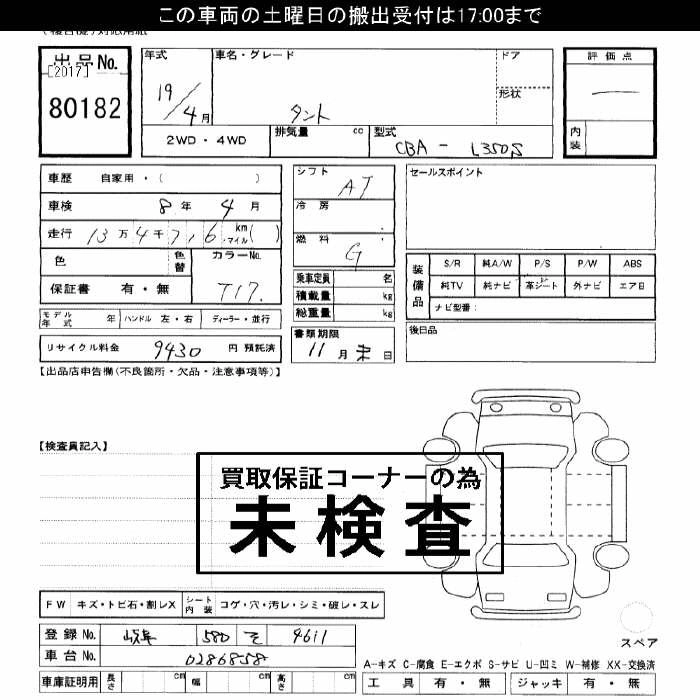 この車両の土曜日の搬出受付は17:00まで
(複合機)対応用紙
出品No.
[2017]
80182
年式
19/4月
車名・グレード
タント
ドア
形状
評価点
内装
2WD・4WD
排気量 cc
型式 CBA - L350S
車歴 自家用・( )
車検 8年 4月
走行 13万4千7,6 km・マイル( )
色
色替
カラーNo.
T17.
保証書 有・無
モデル年式 年 ハンドル 左・右 ディーラー・並行
リサイクル料金 9430 円 預託済
シフト AT
冷房
燃料 G
乗車定員 名
積載量 kg
総重量 kg
書類期限
11月末日
セールスポイント
装備品
S/R 純A/W P/S P/W ABS
純TV 純ナビ 革シート 外ナビ エアB
ナビ型番:
後日品
【出品店申告欄(不良箇所・欠品・注意事項等)】
【検査員記入】
買取保証コーナーの為
未検査
FW キズ・トビ石・割レX シート内装 コゲ・穴・汚レ・シミ・破レ・スレ
登録No. 岐阜 580 そ 4611
車台No. 0286858
車庫証明用 長さ cm 幅 cm 高さ cm
スペア
A-キズ C-腐食 E-エクボ S-サビ U-凹ミ W-補修 XX-交換済
工具 有・無 ジャッキ 有・無